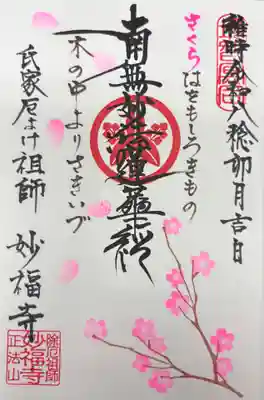 維時令和八稔卯月吉日
さくらはおもしろきもの
南無妙法蓮華経
木の中よりさきいづ
氏家厄よけ祖師 妙福寺
除厄祖師
妙福寺
正法山